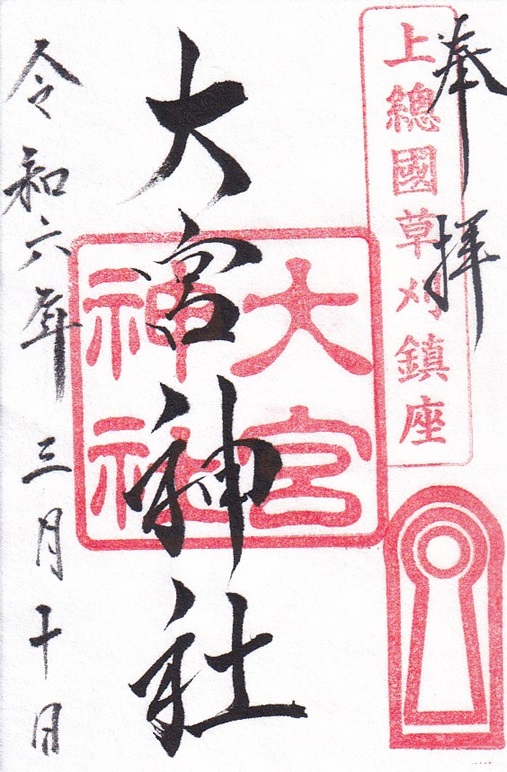 奉拝
上總國草刈鎮座
大宮神社
大宮
神社
令和六年三月十日